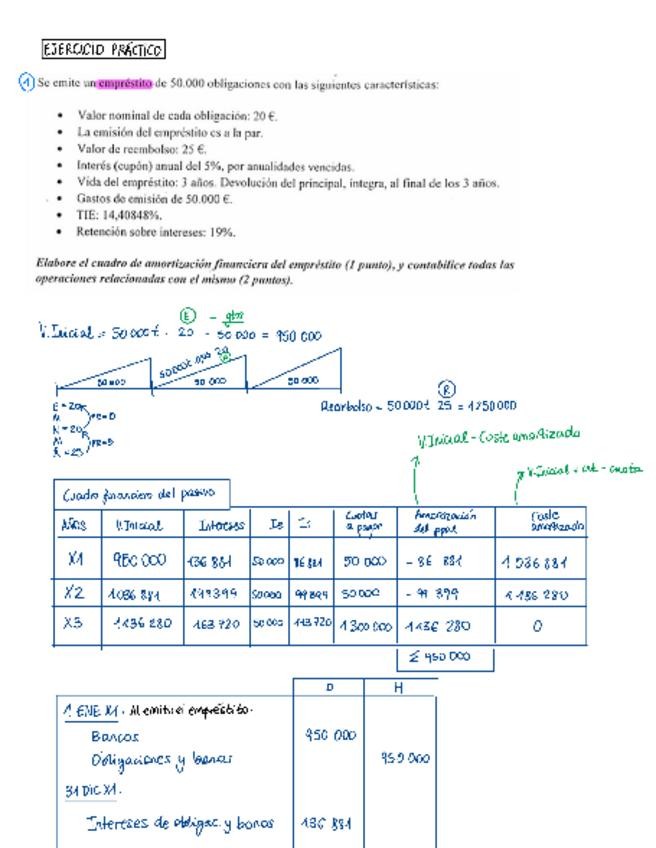 EJERCICIO PRÁCTICO
1 Se emite un empréstito de 50.000 obligaciones con las siguientes características:
• Valor nominal de cada obligación: 20 €.
• La emisión del empréstito es a la par.
• Valor de reembolso: 25 €.
• Interés (cupón) anual del 5%, por anualidades vencidas.
• Vida del empréstito: 3 años. Devolución del principal, íntegra, al final de los 3 años.
• Gastos de emisión de 50.000 €.
• TIE: 14,40848%.
• Retención sobre intereses: 19%.
Elabore el cuadro de amortización financiera del empréstito (1 punto), y contabilice todas las
operaciones relacionadas con el mismo (2 puntos).
E - gtos
V. Inicial = 50 000t · 20 - 50 000 = 950 000
50 000 50 000 50 000
E = 20
N = 20
R = 25
R
Reembolso = 50 000t 25 = 1 250 000
V. Inicial - Coste amortizado
V. Inicial + int - cuota
Cuadro financiero del pasivo
AÑOS V. Inicial Intereses Ie Ii Cuotas a pagar Amortización del ppal Coste amortizado
X1 950 000 136 881 50 000 86 881 50 000 - 86 881 1 036 881
X2 1 036 881 149 399 50 000 99 399 50 000 - 99 399 1 136 280
X3 1 136 280 163 720 50 000 113 720 1 300 000 1 136 280 0
Σ 950 000
D H
1 ENE X1. Al emitir el empréstito.
Bancos 950 000
Obligaciones y bonos 950 000
31 DIC X1.
Intereses de obligac. y bonos 136 881